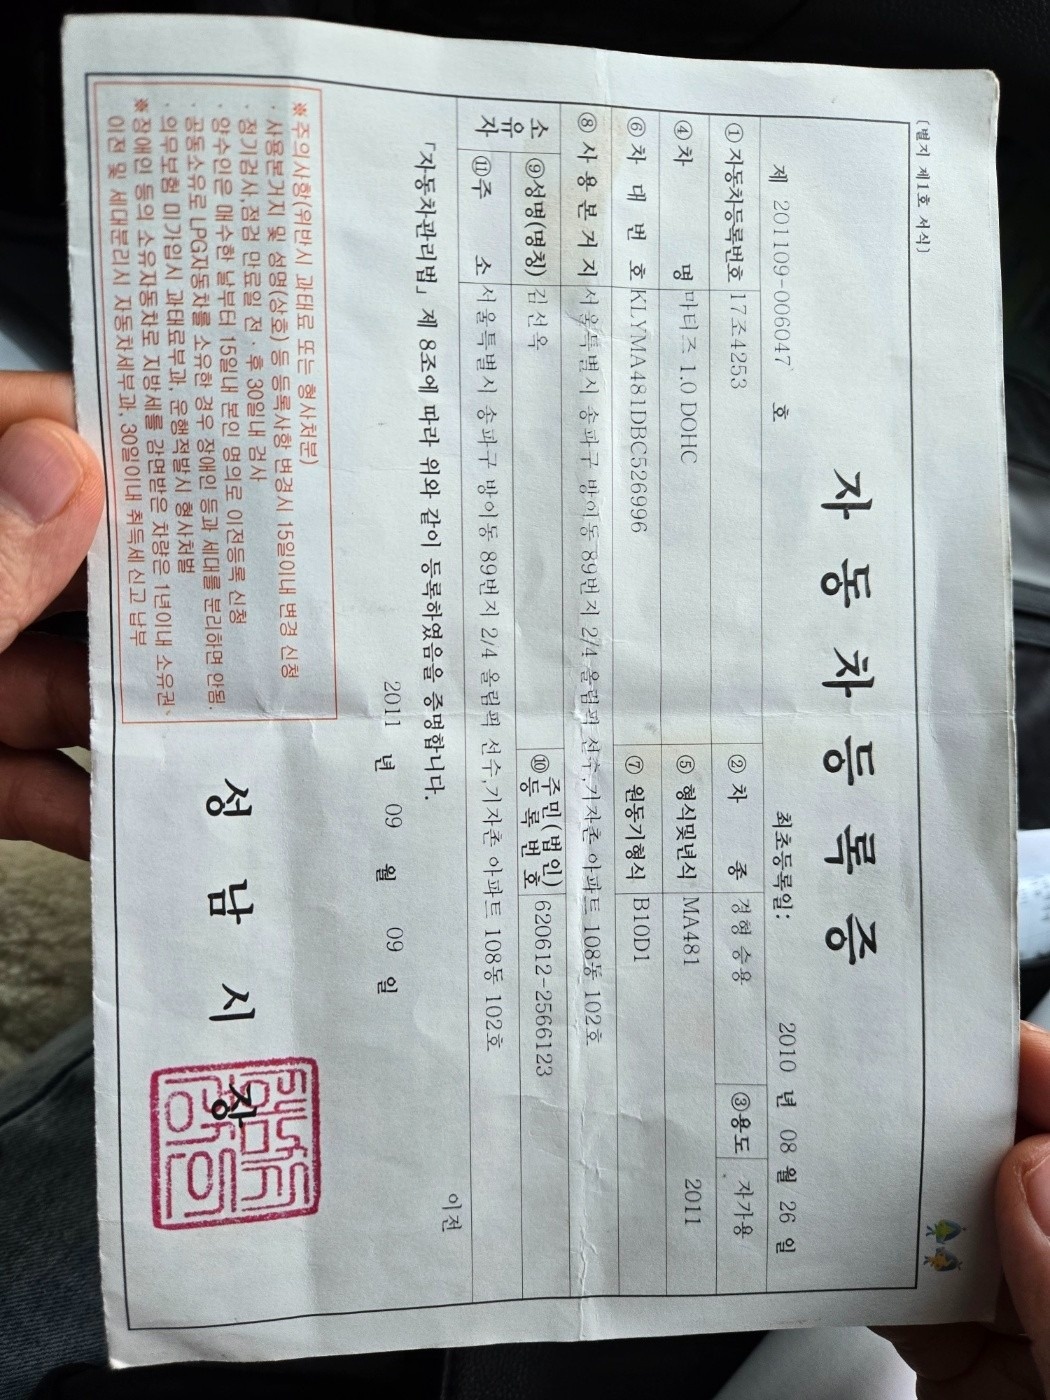 [별지 제1호 서식]
자동차등록증
제 201109-006047 호 최초등록일: 2010 년 08 월 26 일
① 자동차등록번호 17조4253 ② 차 종 경형 승용 ③용도 자가용
④ 차 명 마티즈 1.0 DOHC ⑤ 형식및년식 MA481 2011
⑥ 차 대 번 호 KLYMA481DBC526996 ⑦ 원동기형식 B10D1
⑧ 사 용 본 거 지 서울특별시 송파구 방이동 89번지 2/4 올림픽 선수,기자촌 아파트 108동 102호
소유자 ⑨성명(명칭) 김선옥 ⑩ 주민(법인)등록번호 620612-2566123
⑪주 소 서울특별시 송파구 방이동 89번지 2/4 올림픽 선수,기자촌 아파트 108동 102호
「자동차관리법」 제 8조에 따라 위와 같이 등록하였음을 증명합니다.
이전
2011 년 09 월 09 일
※ 주의사항(위반시 과태료 또는 형사처분)
· 사용본거지 및 성명(상호) 등 등록사항 변경시 15일이내 변경 신청
· 정기검사,점검 만료일 전·후 30일내 검사
· 양수인은 매수한 날부터 15일내 본인 명의로 이전등록 신청
· 공동소유로 LPG자동차를 소유한 경우 장애인 등과 세대를 분리하면 안됨.
· 의무보험 미가입시 과태료부과, 운행적발시 형사처벌
※ 장애인 등의 소유자동차로 지방세를 감면받은 차량은 1년이내 소유권
이전 및 세대분리시 자동차세부과, 30일이내 취득세 신고 납부
성남시장